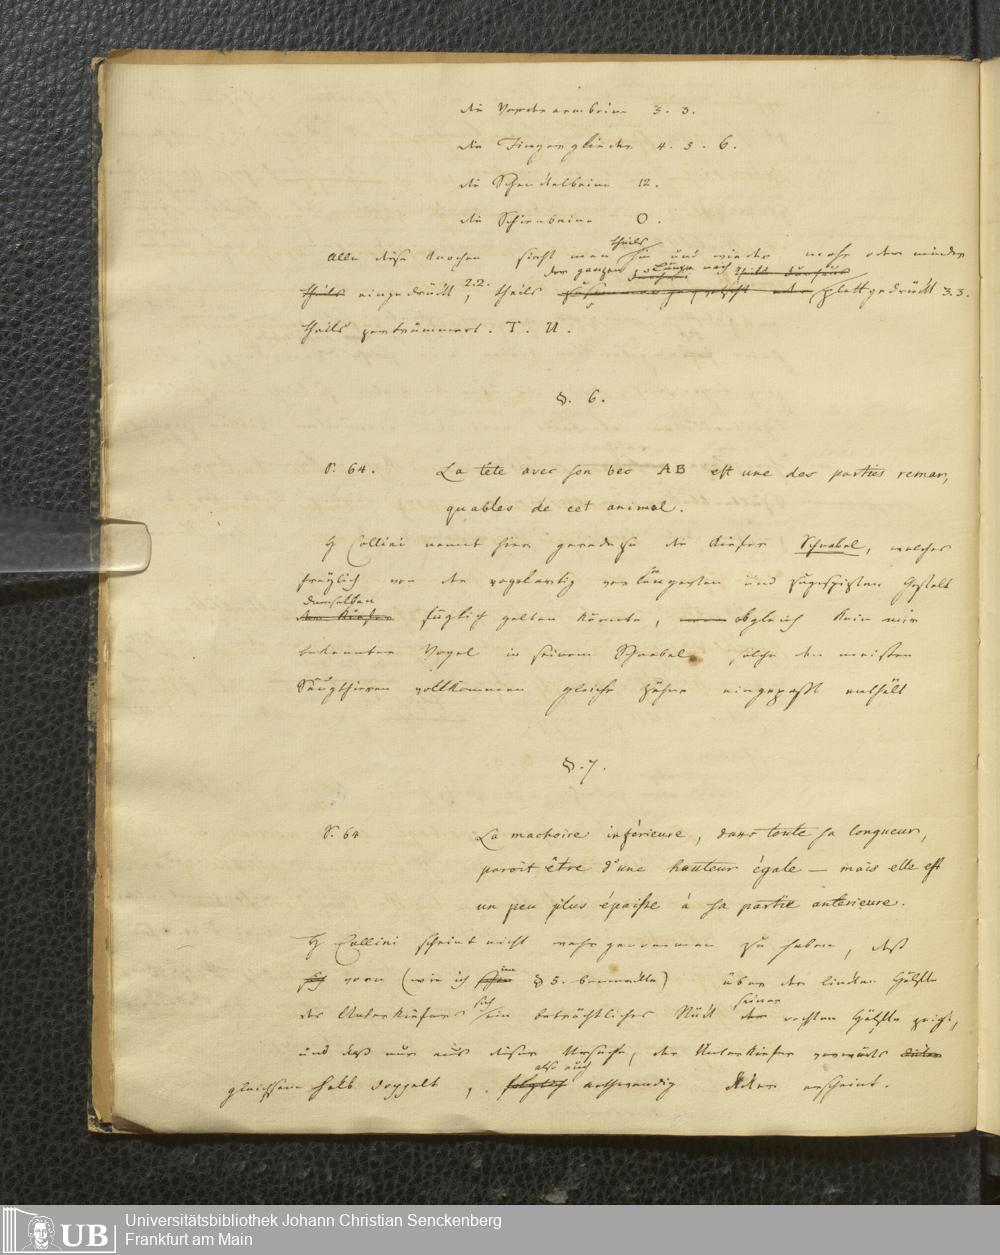 die Vorderarmbeine 3. 3.
die Fingerglieder 4. 5. 6.
die Schenkelbeine 12.
die Schienbeine O.
theils
Alle diese Knochen sieht man hin und wieder mehr oder minder
der ganzen Länge nach
theils eingedrückt 2.2., theils zusammengequetscht oder plattgedrückt 3.3.
theils zertrümmert. T. U.
§. 6.
S. 64. La tête avec son bec AB est une des parties remar,
quables de cet animal.
H Collini nennt hier geradezu die Kiefer Schnabel, welches
freylich von der vogelartig verlängerten und zugespizten Gestalt
demselben
den Kiefer füglich gelten könnte, obgleich kein mir
bekannter Vogel in seinem Schnabel solche den meisten
Säugthieren vollkommen gleiche Zähne eingepasst enthält
§. 7.
S. 64 La machoire inférieure, dans toute sa longueur,
paroit être d'une hauteur égale — mais elle est
un peu plus épaisse à sa partie anterieure.
H Collini scheint nicht wahrgenommen zu haben, daß
im
sich vorn (wie ich § 5. bemerkte) über der linken Hälfte
sich seiner
des Unterkiefers ein beträchtliches Stück der rechten Hälfte zeigt,
und daß nur aus dieser Ursache, der Unterkiefer vorwärts dicker
also auch
gleichsam halb doppelt, folglich nothwendig dicker erscheint.
UB Universitätsbibliothek Johann Christian Senckenberg
Frankfurt am Main